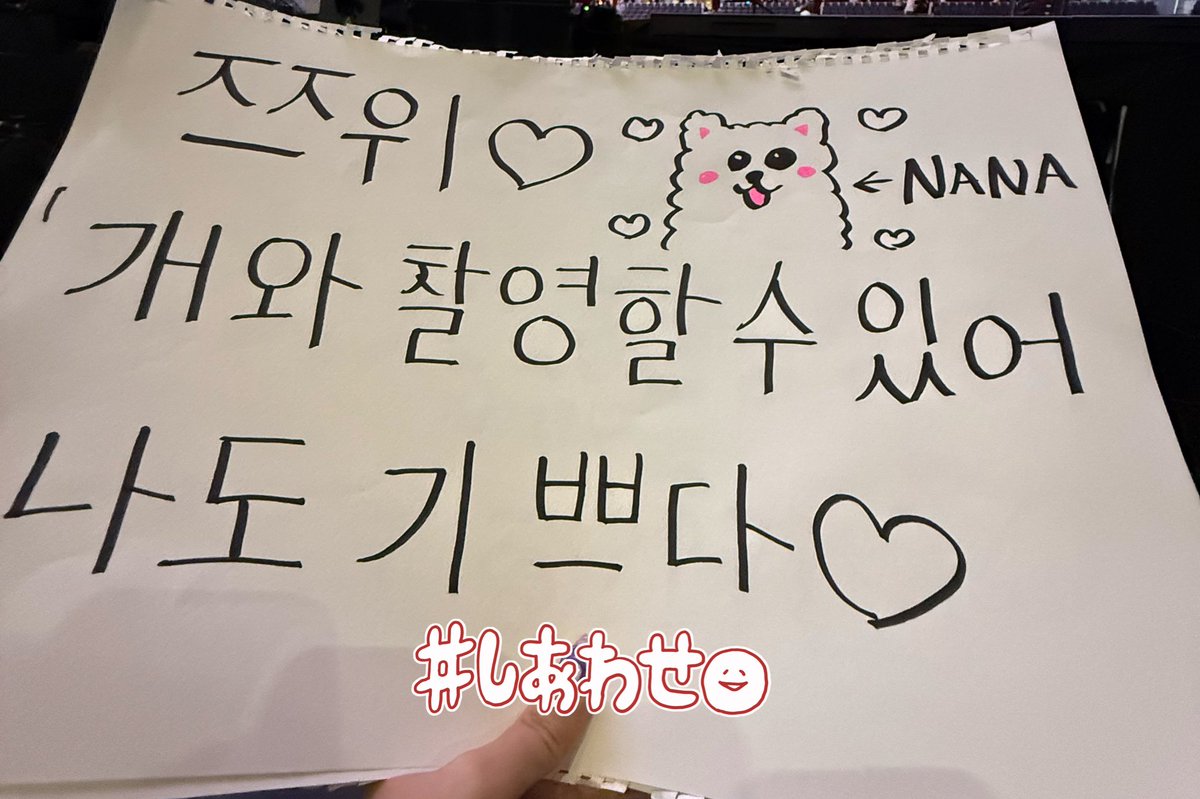 쯔위♡
← NANA
'개와 촬영할 수 있어
나도 기쁘다♡
#しあわせ